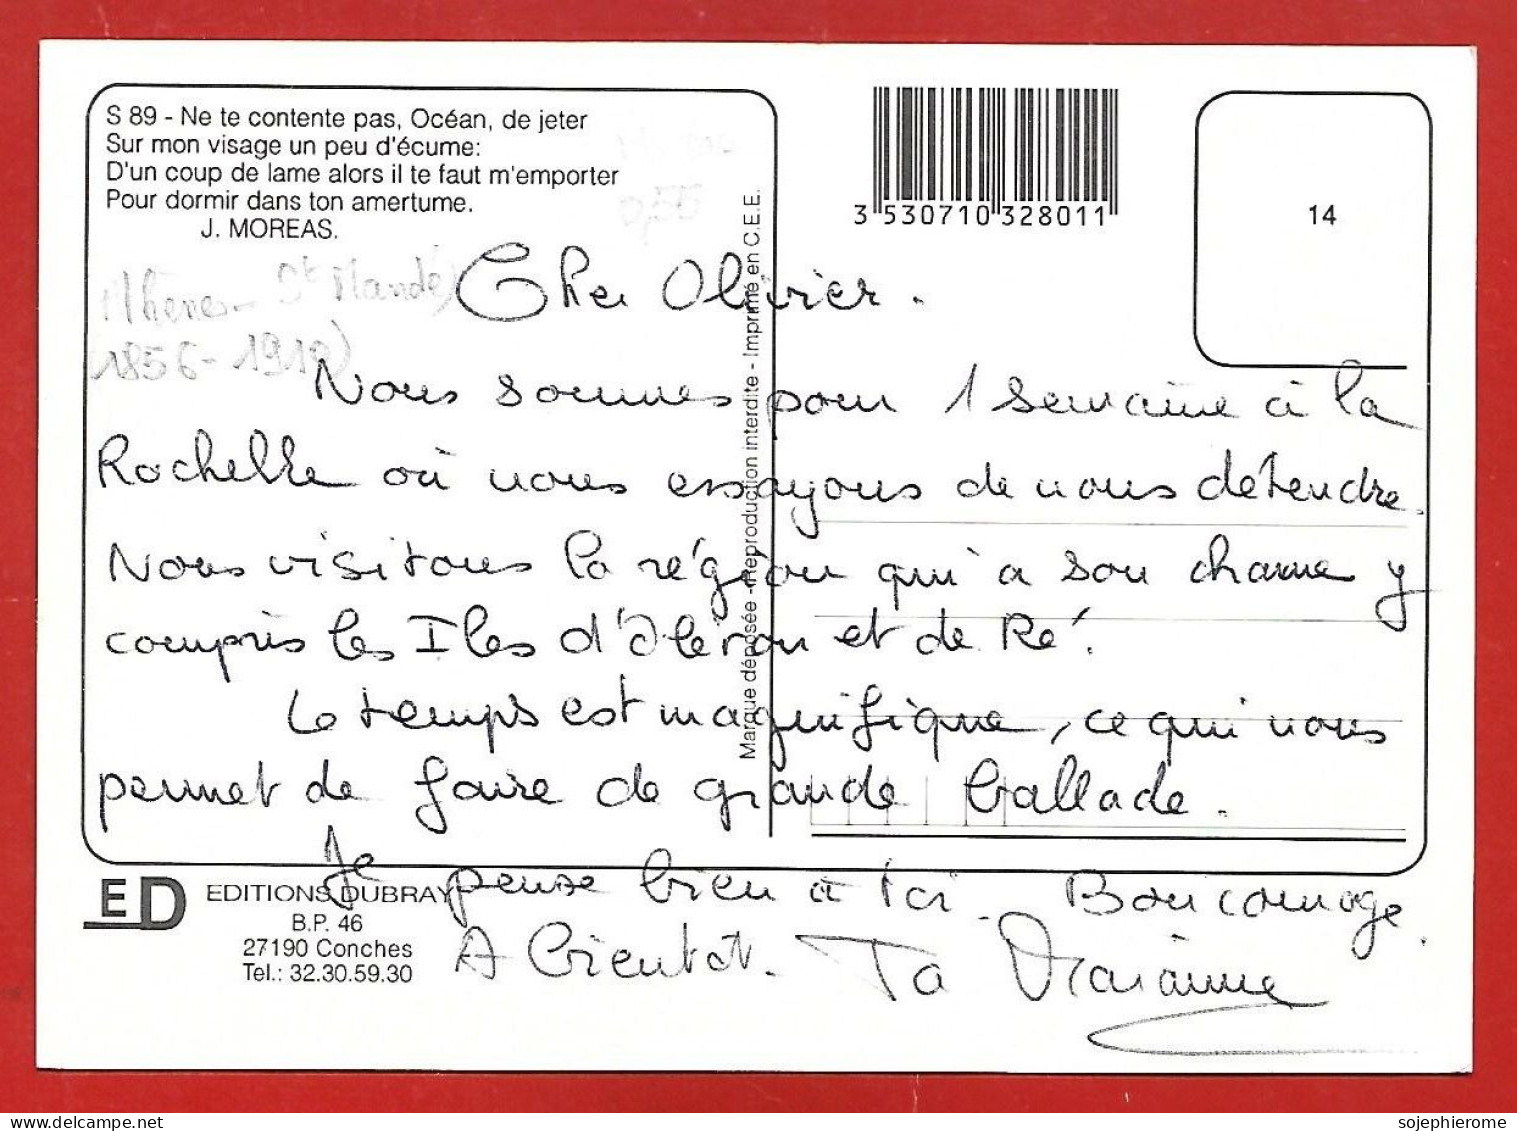 S 89 - Ne te contente pas, Océan, de jeter
Sur mon visage un peu d'écume:
D'un coup de lame alors il te faut m'emporter
Pour dormir dans ton amertume.
J. MOREAS.
Athènes - St Mandé)
(1856-1910)
0,55
3 530710 328011
14
Marque déposée - Reproduction interdite - Imprimé en C.E.E.
Cher Olivier.
Nous sommes pour 1 semaine à la
Rochelle où nous essayons de nous détendre.
Nous visitons la région qui a son charme y
compris les Iles d'Oléron et de Ré.
Le temps est magnifique, ce qui nous
permet de faire de grande ballade.
Je pense bien à toi. Bon courage.
A Bientot. Ta Marianne
ED
EDITIONS DUBRAY
B.P. 46
27190 Conches
Tel.: 32.30.59.30
sojephierome